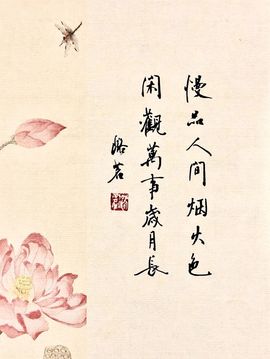 慢品人间烟火色
闲觀萬事歲月長